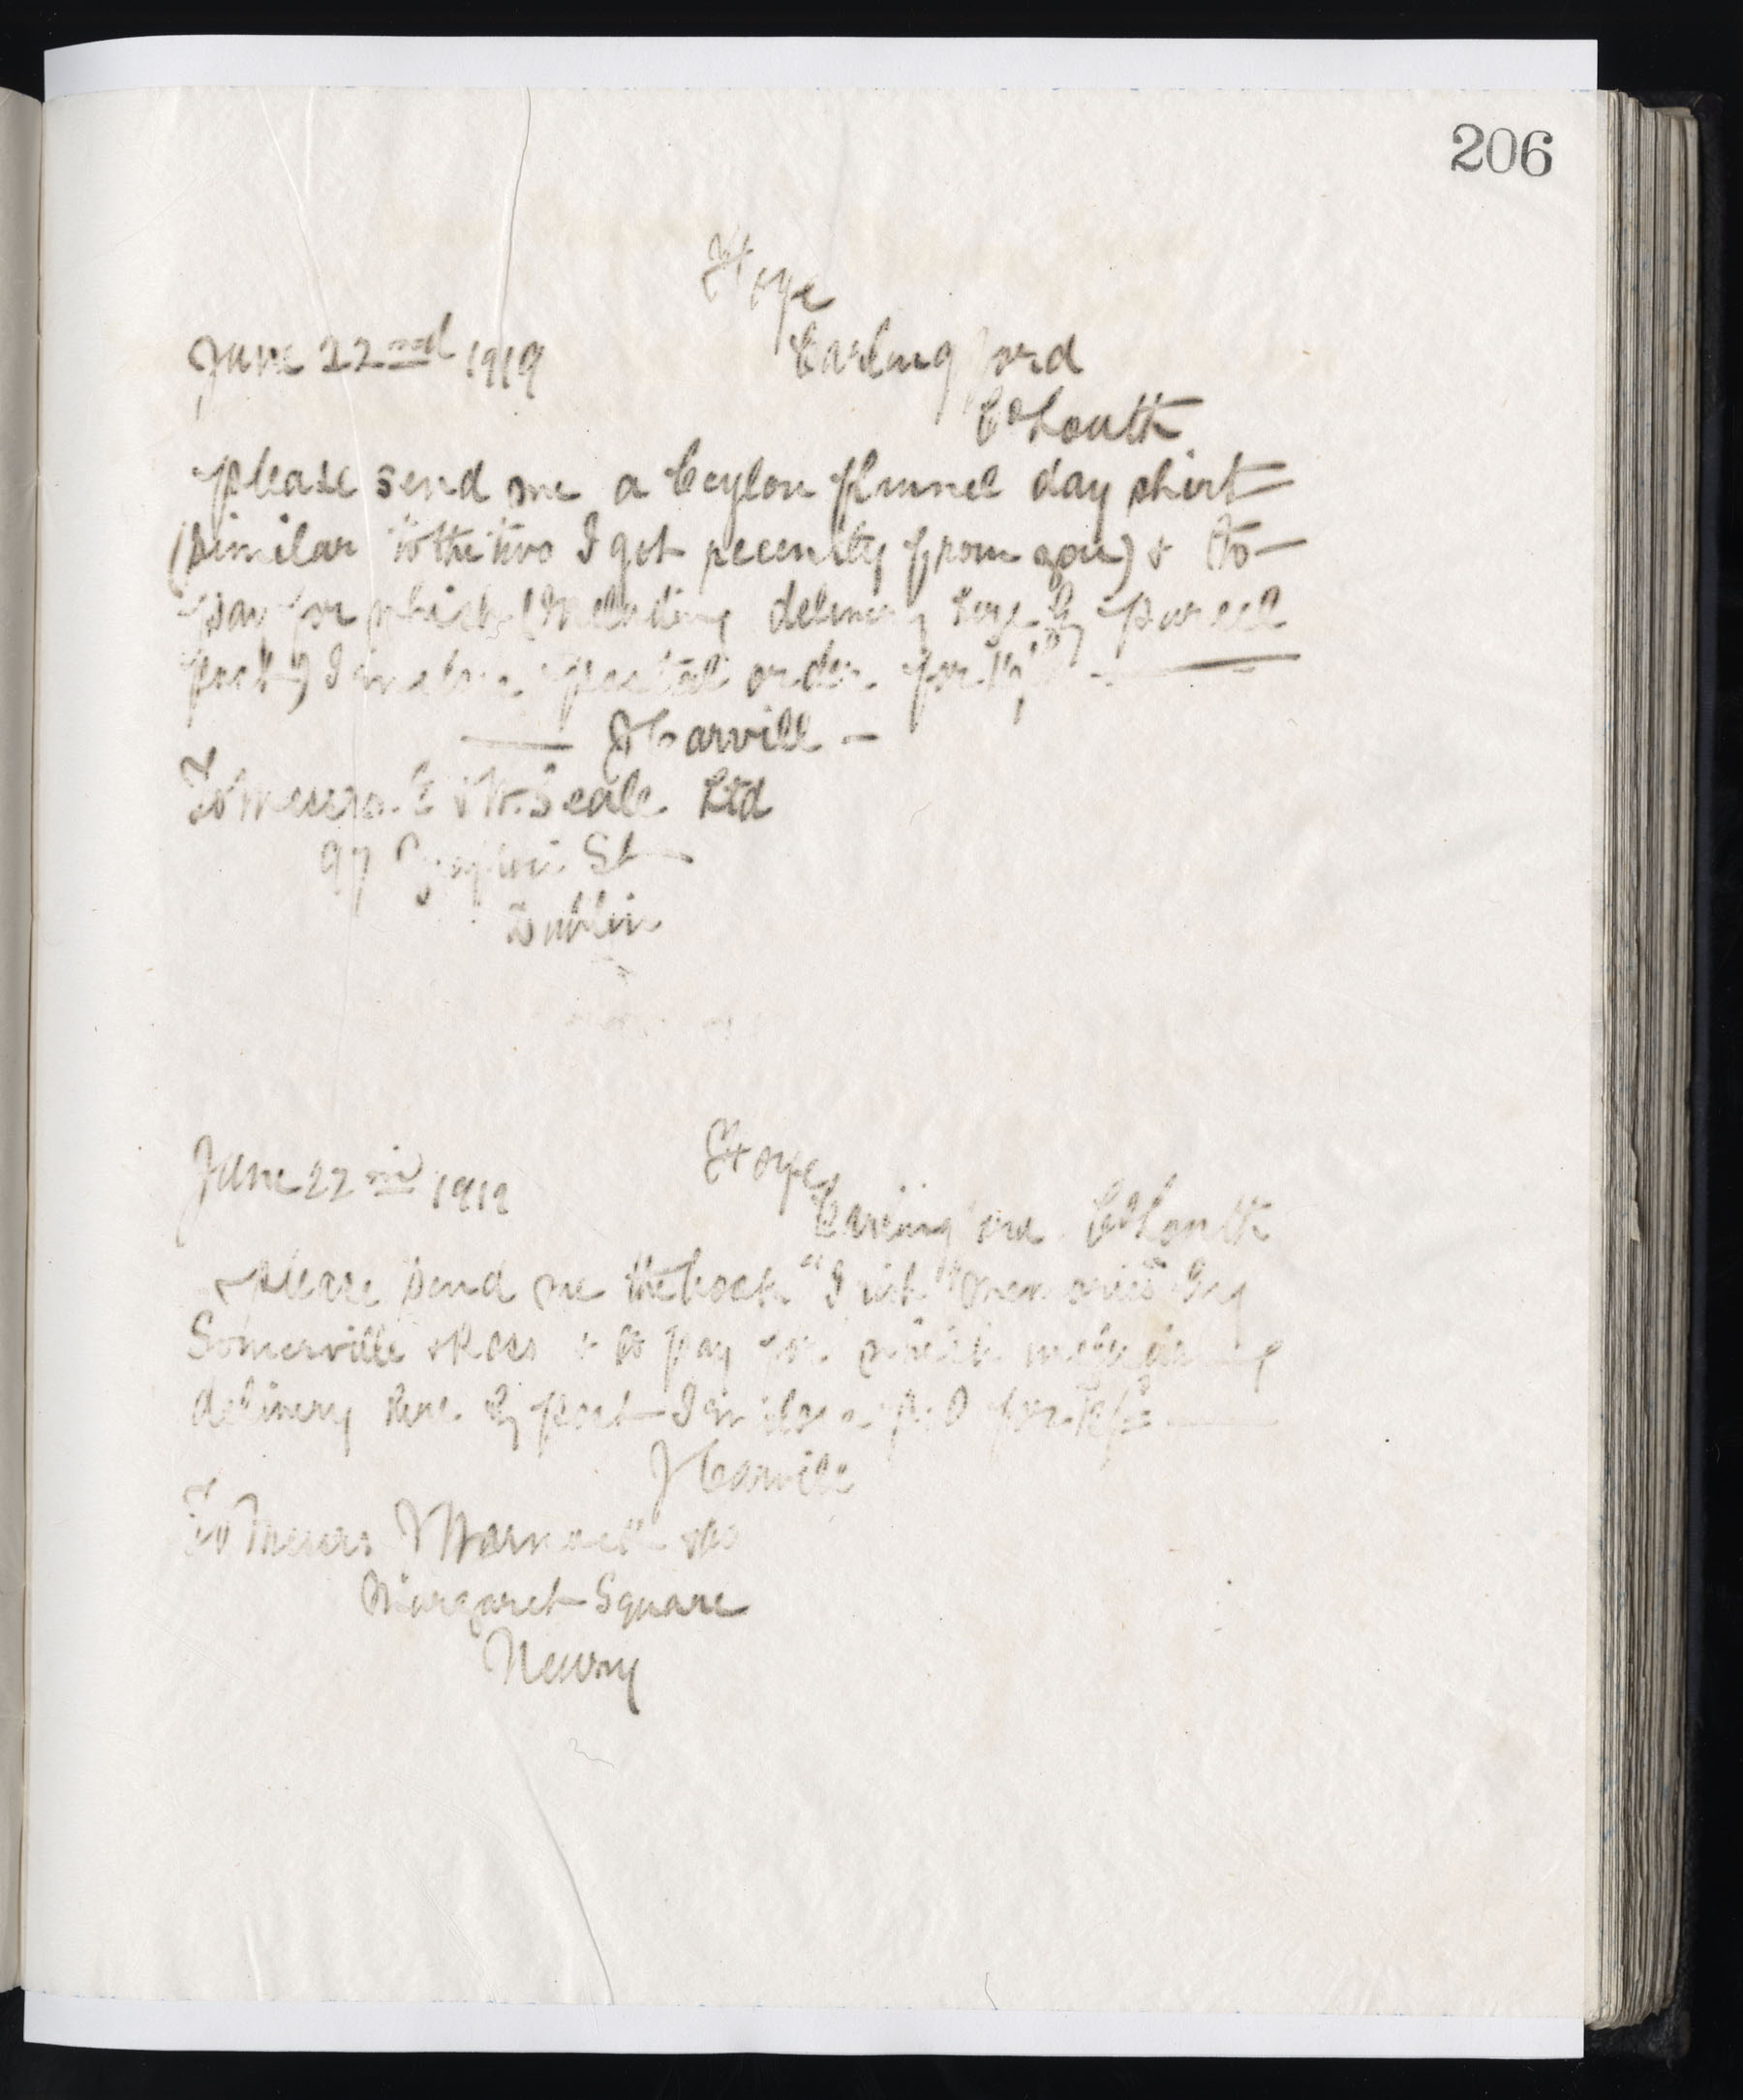 206
Hope
June 22nd 1919 Carlingford
Co Louth
please send me a Ceylon flannel day shirt
(similar to the two I got recently from you) & to
pay for which (including delivery here by parcel
post) I enclose postal order for
J Carvill
To Messrs. E & W. Seale Ltd
97 Grafton St
Dublin
June 22nd 1919 Hope
Carlingford Co Louth
please send me the book "Irish Memories" by
Somerville & Ross & to pay for which including
delivery here by post I enclose p. O for
J Carvill
To Messrs J Warnock & Co
Margaret Square
Newry